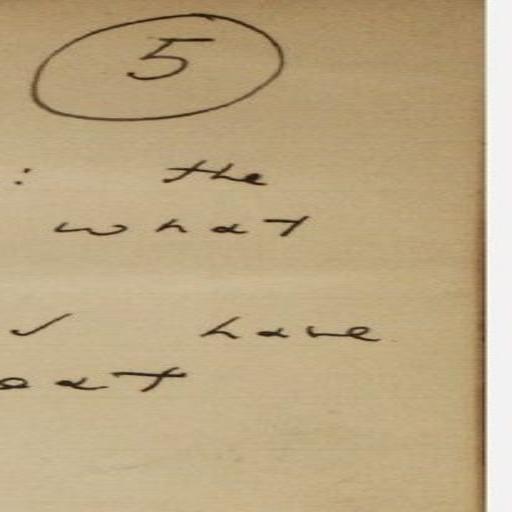 5
: the
what
have
eat